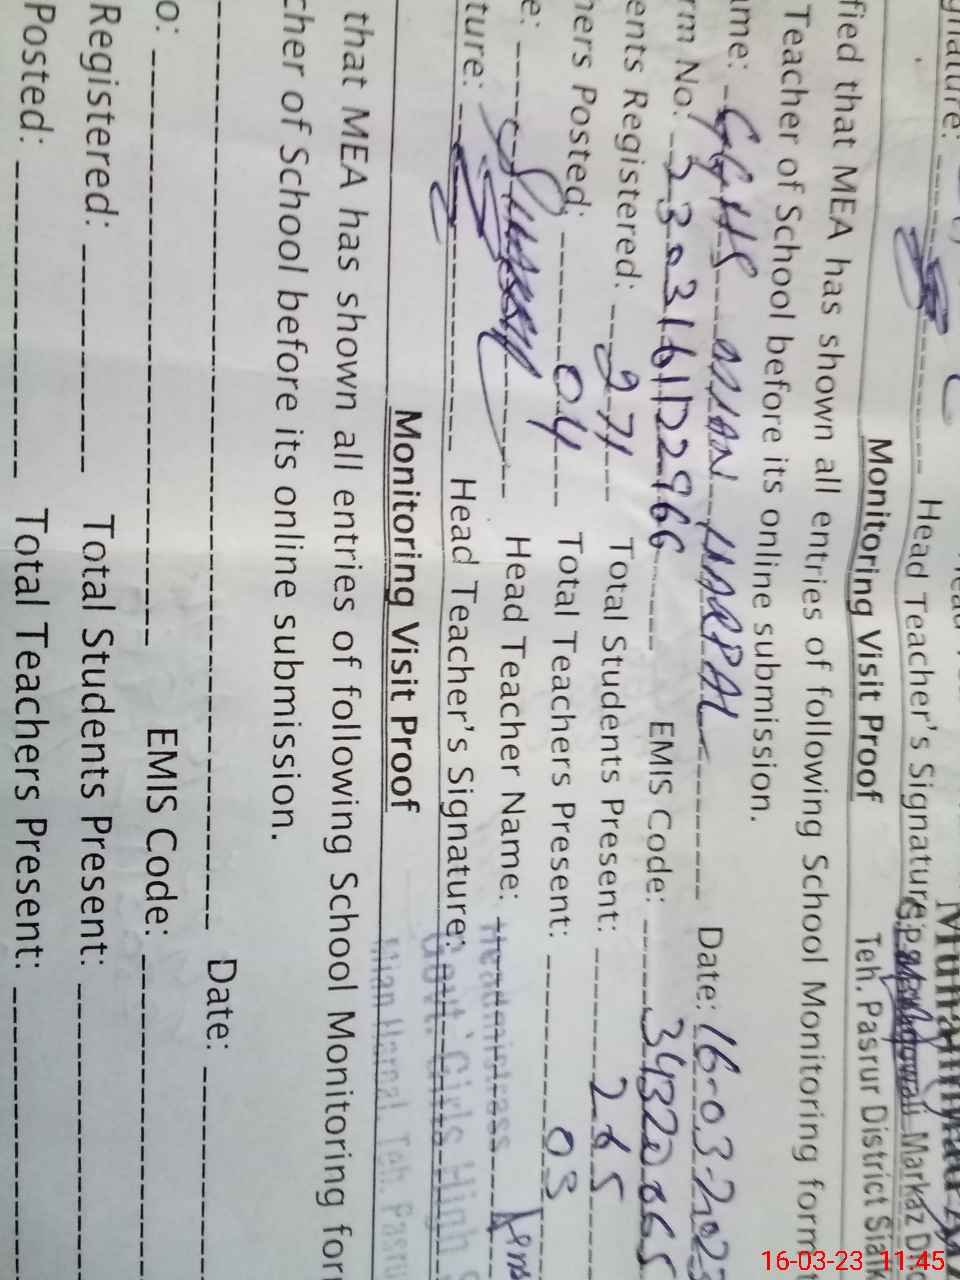 gnature: Head Teacher's Signature:
Teh. Pasrur District Sialk
Monitoring Visit Proof
fied that MEA has shown all entries of following School Monitoring format
Teacher of School before its online submission.
ame: GGHS MIAN HARPAL Date: 16-03-2023
rm No: 33031612966 EMIS Code: 34320065
ents Registered: 271 Total Students Present: 265
hers Posted: 04 Total Teachers Present: 03
e: Head Teacher Name: Headmistress
ture: Head Teacher's Signature: Govt. Girls High
Mian Harpal, Teh. Pasru
Monitoring Visit Proof
that MEA has shown all entries of following School Monitoring for
cher of School before its online submission.
Date:
o: EMIS Code:
Registered: Total Students Present:
Posted: Total Teachers Present:
16-03-23 11:45